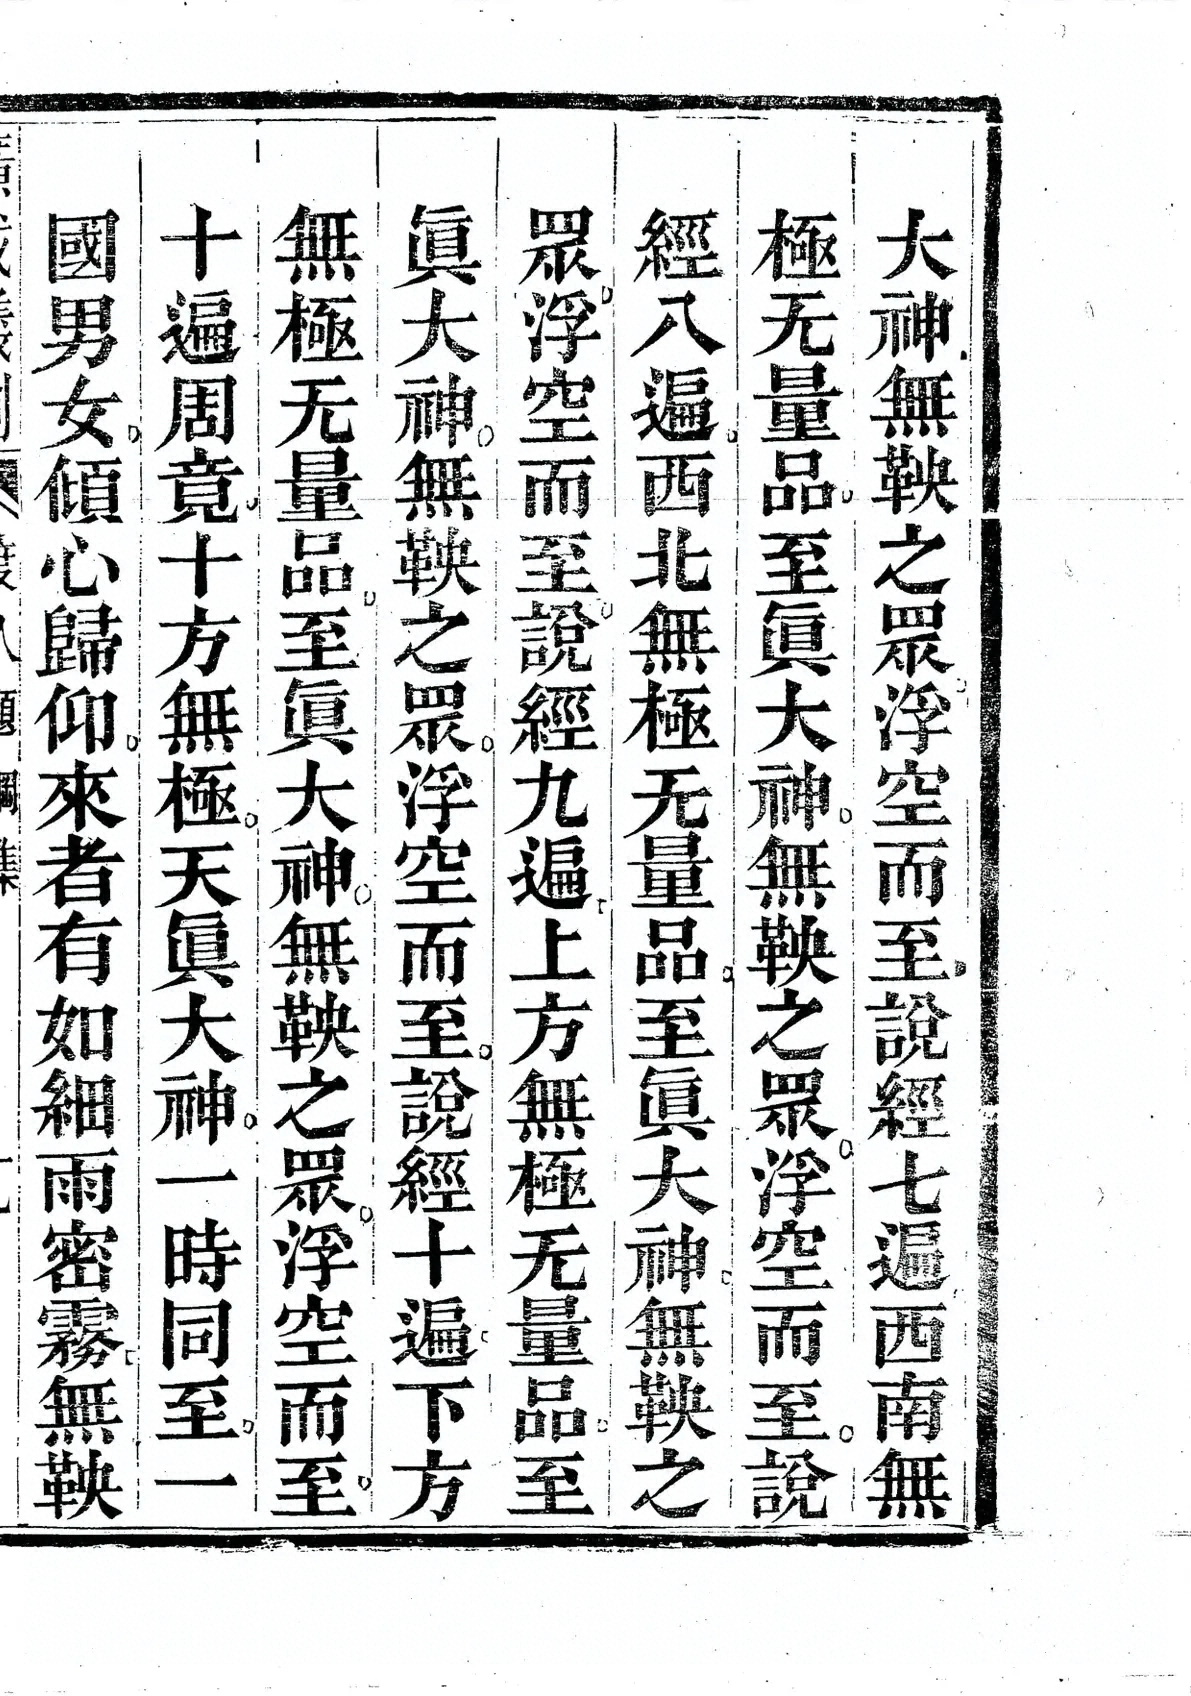 大神無鞅之眾浮空而至說經七遍西南無
極无量品至眞大神無鞅之眾浮空而至說
經八遍西北無極无量品至眞大神無鞅之
眾浮空而至說經九遍上方無極无量品至
眞大神無鞅之眾浮空而至說經十遍下方
無極无量品至眞大神無鞅之眾浮空而至
十遍周竟十方無極天眞大神一時同至一
國男女傾心歸仰來者有如細雨密霧無鞅